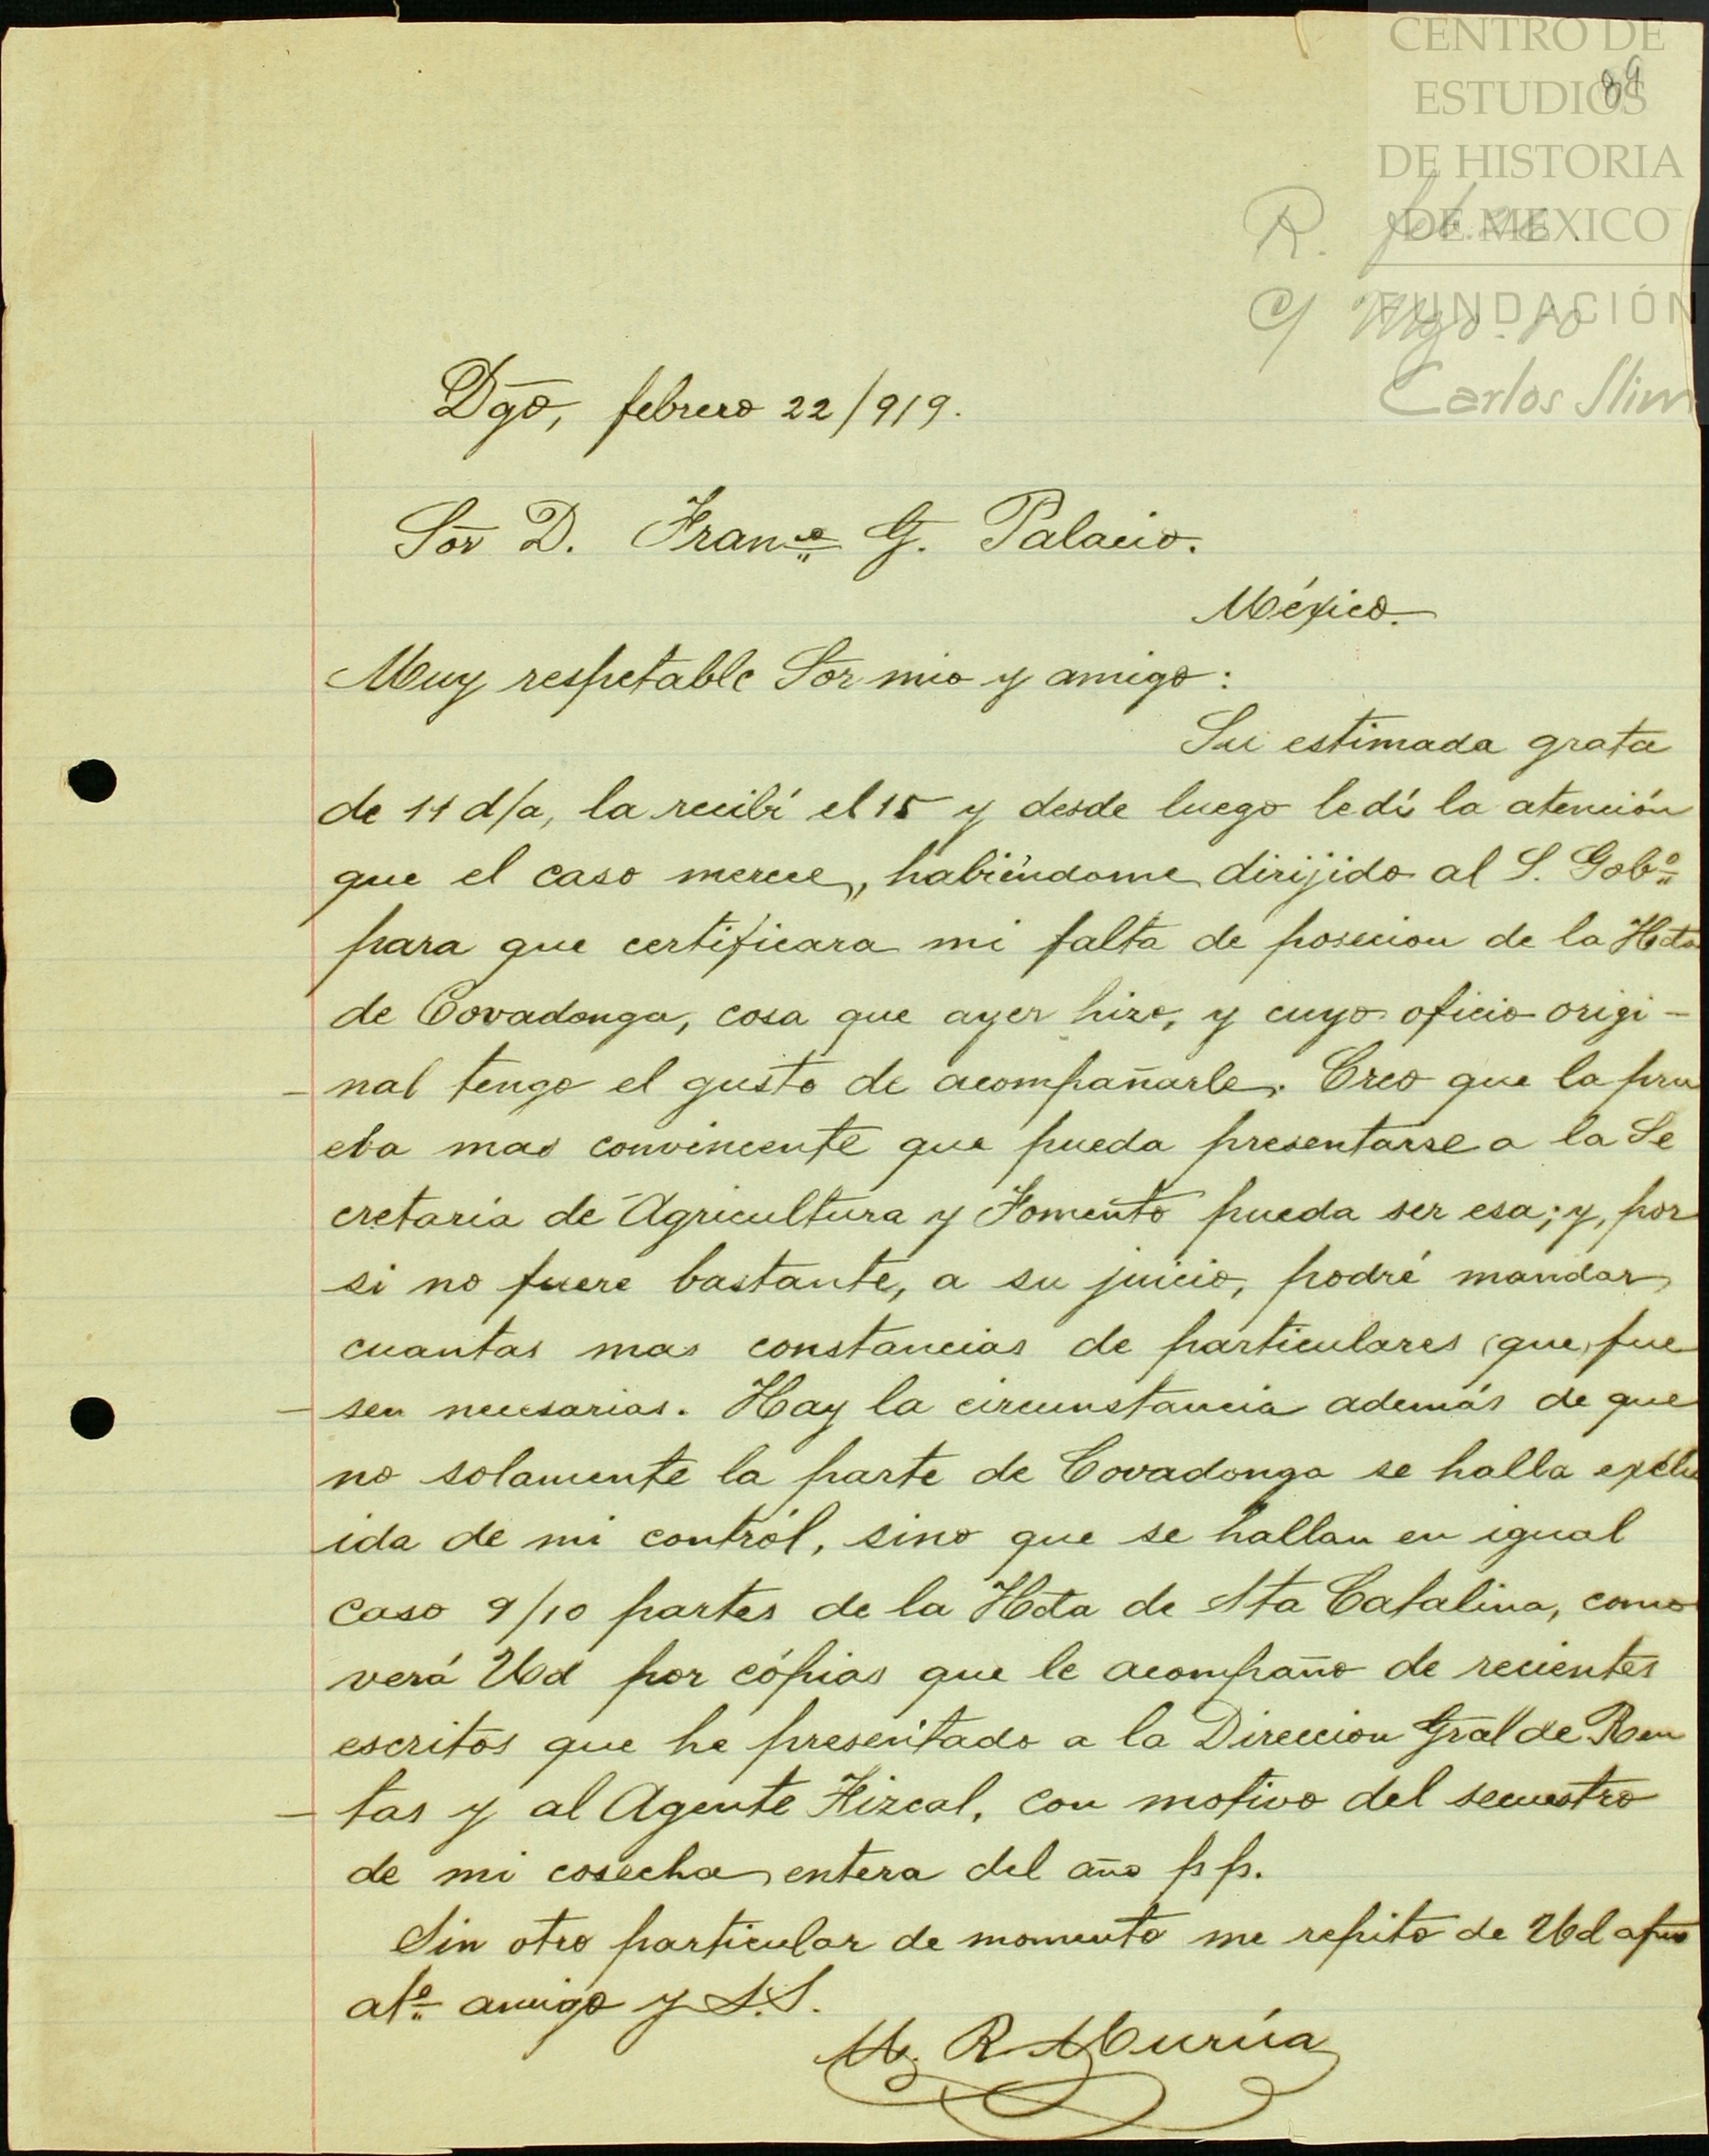 CENTRO DE
ESTUDIOS
DE HISTORIA
DE MEXICO
FUNDACIÓN
Carlos Slim
89
R.
C/ Mzo. 10
Dgo, febrero 22/919.
Sor D. Franco G. Palacio.
México.
Muy respetable Sor mio y amigo:
Su estimada grata
de 11 d/a, la recibí el 15 y desde luego le dí la atención
que el caso merece, habiéndome dirijido al S. Gobo
para que certificara mi falta de posecion de la Hda
de Covadonga, cosa que ayer hizo, y cuyo oficio origi-
nal tengo el gusto de acompañarle. Creo que la pru
eba mas convincente que pueda presentarse a la Se
cretaría de Agricultura y Fomento pueda ser esa; y, por
si no fuere bastante, a su juicio, podré mandar
cuantas mas constancias de particulares que fue
sen necesarias. Hay la circunstancia además de que
no solamente la parte de Covadonga se halla exclu
ida de mi contról, sino que se hallan en igual
caso 9/10 partes de la Hda de Sta Catalina, como
verá Ud por cópias que le acompaño de recientes
escritos que he presentado a la Direccion Gral de Ren
tas y al Agente Fizcal, con motivo del secuestro
de mi cosecha entera del año pp.
Sin otro particular de momento me repito de Ud afmo
ato amigo y S.S.
M. R Murúa